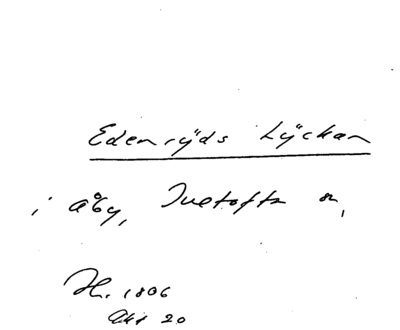 Edenryds Lyckan
i åby, Ivetofta sn,
Hr. 1806
Akt 20